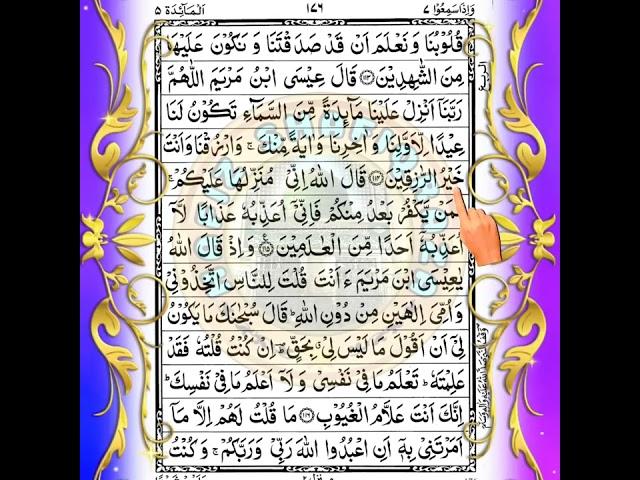 وَاِذَاسَمِعُوْا ٧
١٧٦
اَلْمَآئِدَة ٥
قُلُوْبُنَا وَ نَعْلَمَ اَنْ قَدْ صَدَقْتَنَا وَ نَكُوْنَ عَلَيْهَا
مِنَ الشّٰهِدِيْنَ ﴿١١٣﴾ قَالَ عِيْسَى ابْنُ مَرْيَمَ اللّٰهُمَّ
رَبَّنَاۤ اَنْزِلْ عَلَيْنَا مَآئِدَةً مِّنَ السَّمَآءِ تَكُوْنُ لَنَا
عِيْدًا لِّاَوَّلِنَا وَ اٰخِرِنَا وَ اٰيَةً مِّنْكَ ۚ وَارْزُقْنَا وَاَنْتَ
خَيْرُ الرّٰزِقِيْنَ ﴿١١٤﴾ قَالَ اللّٰهُ اِنِّيْ مُنَزِّلُهَا عَلَيْكُمْ ۚ
فَمَنْ يَّكْفُرْ بَعْدُ مِنْكُمْ فَاِنِّيْۤ اُعَذِّبُهٗ عَذَابًا لَّاۤ
اُعَذِّبُهٗۤ اَحَدًا مِّنَ الْعٰلَمِيْنَ ﴿١١٥﴾ وَ اِذْ قَالَ اللّٰهُ
يٰعِيْسَى ابْنَ مَرْيَمَ ءَاَنْتَ قُلْتَ لِلنَّاسِ اتَّخِذُوْنِيْ
وَ اُمِّيَ اِلٰهَيْنِ مِنْ دُوْنِ اللّٰهِ ؕ قَالَ سُبْحٰنَكَ مَا يَكُوْنُ
لِيْۤ اَنْ اَقُوْلَ مَا لَيْسَ لِيْ ۗ بِحَقٍّ ؕ اِنْ كُنْتُ قُلْتُهٗ فَقَدْ
عَلِمْتَهٗ ؕ تَعْلَمُ مَا فِيْ نَفْسِيْ وَ لَاۤ اَعْلَمُ مَا فِيْ نَفْسِكَ ؕ
اِنَّكَ اَنْتَ عَلَّامُ الْغُيُوْبِ ﴿١١٦﴾ مَا قُلْتُ لَهُمْ اِلَّا مَاۤ
اَمَرْتَنِيْ بِهٖۤ اَنِ اعْبُدُوا اللّٰهَ رَبِّيْ وَرَبَّكُمْ ۚ وَ كُنْتُ